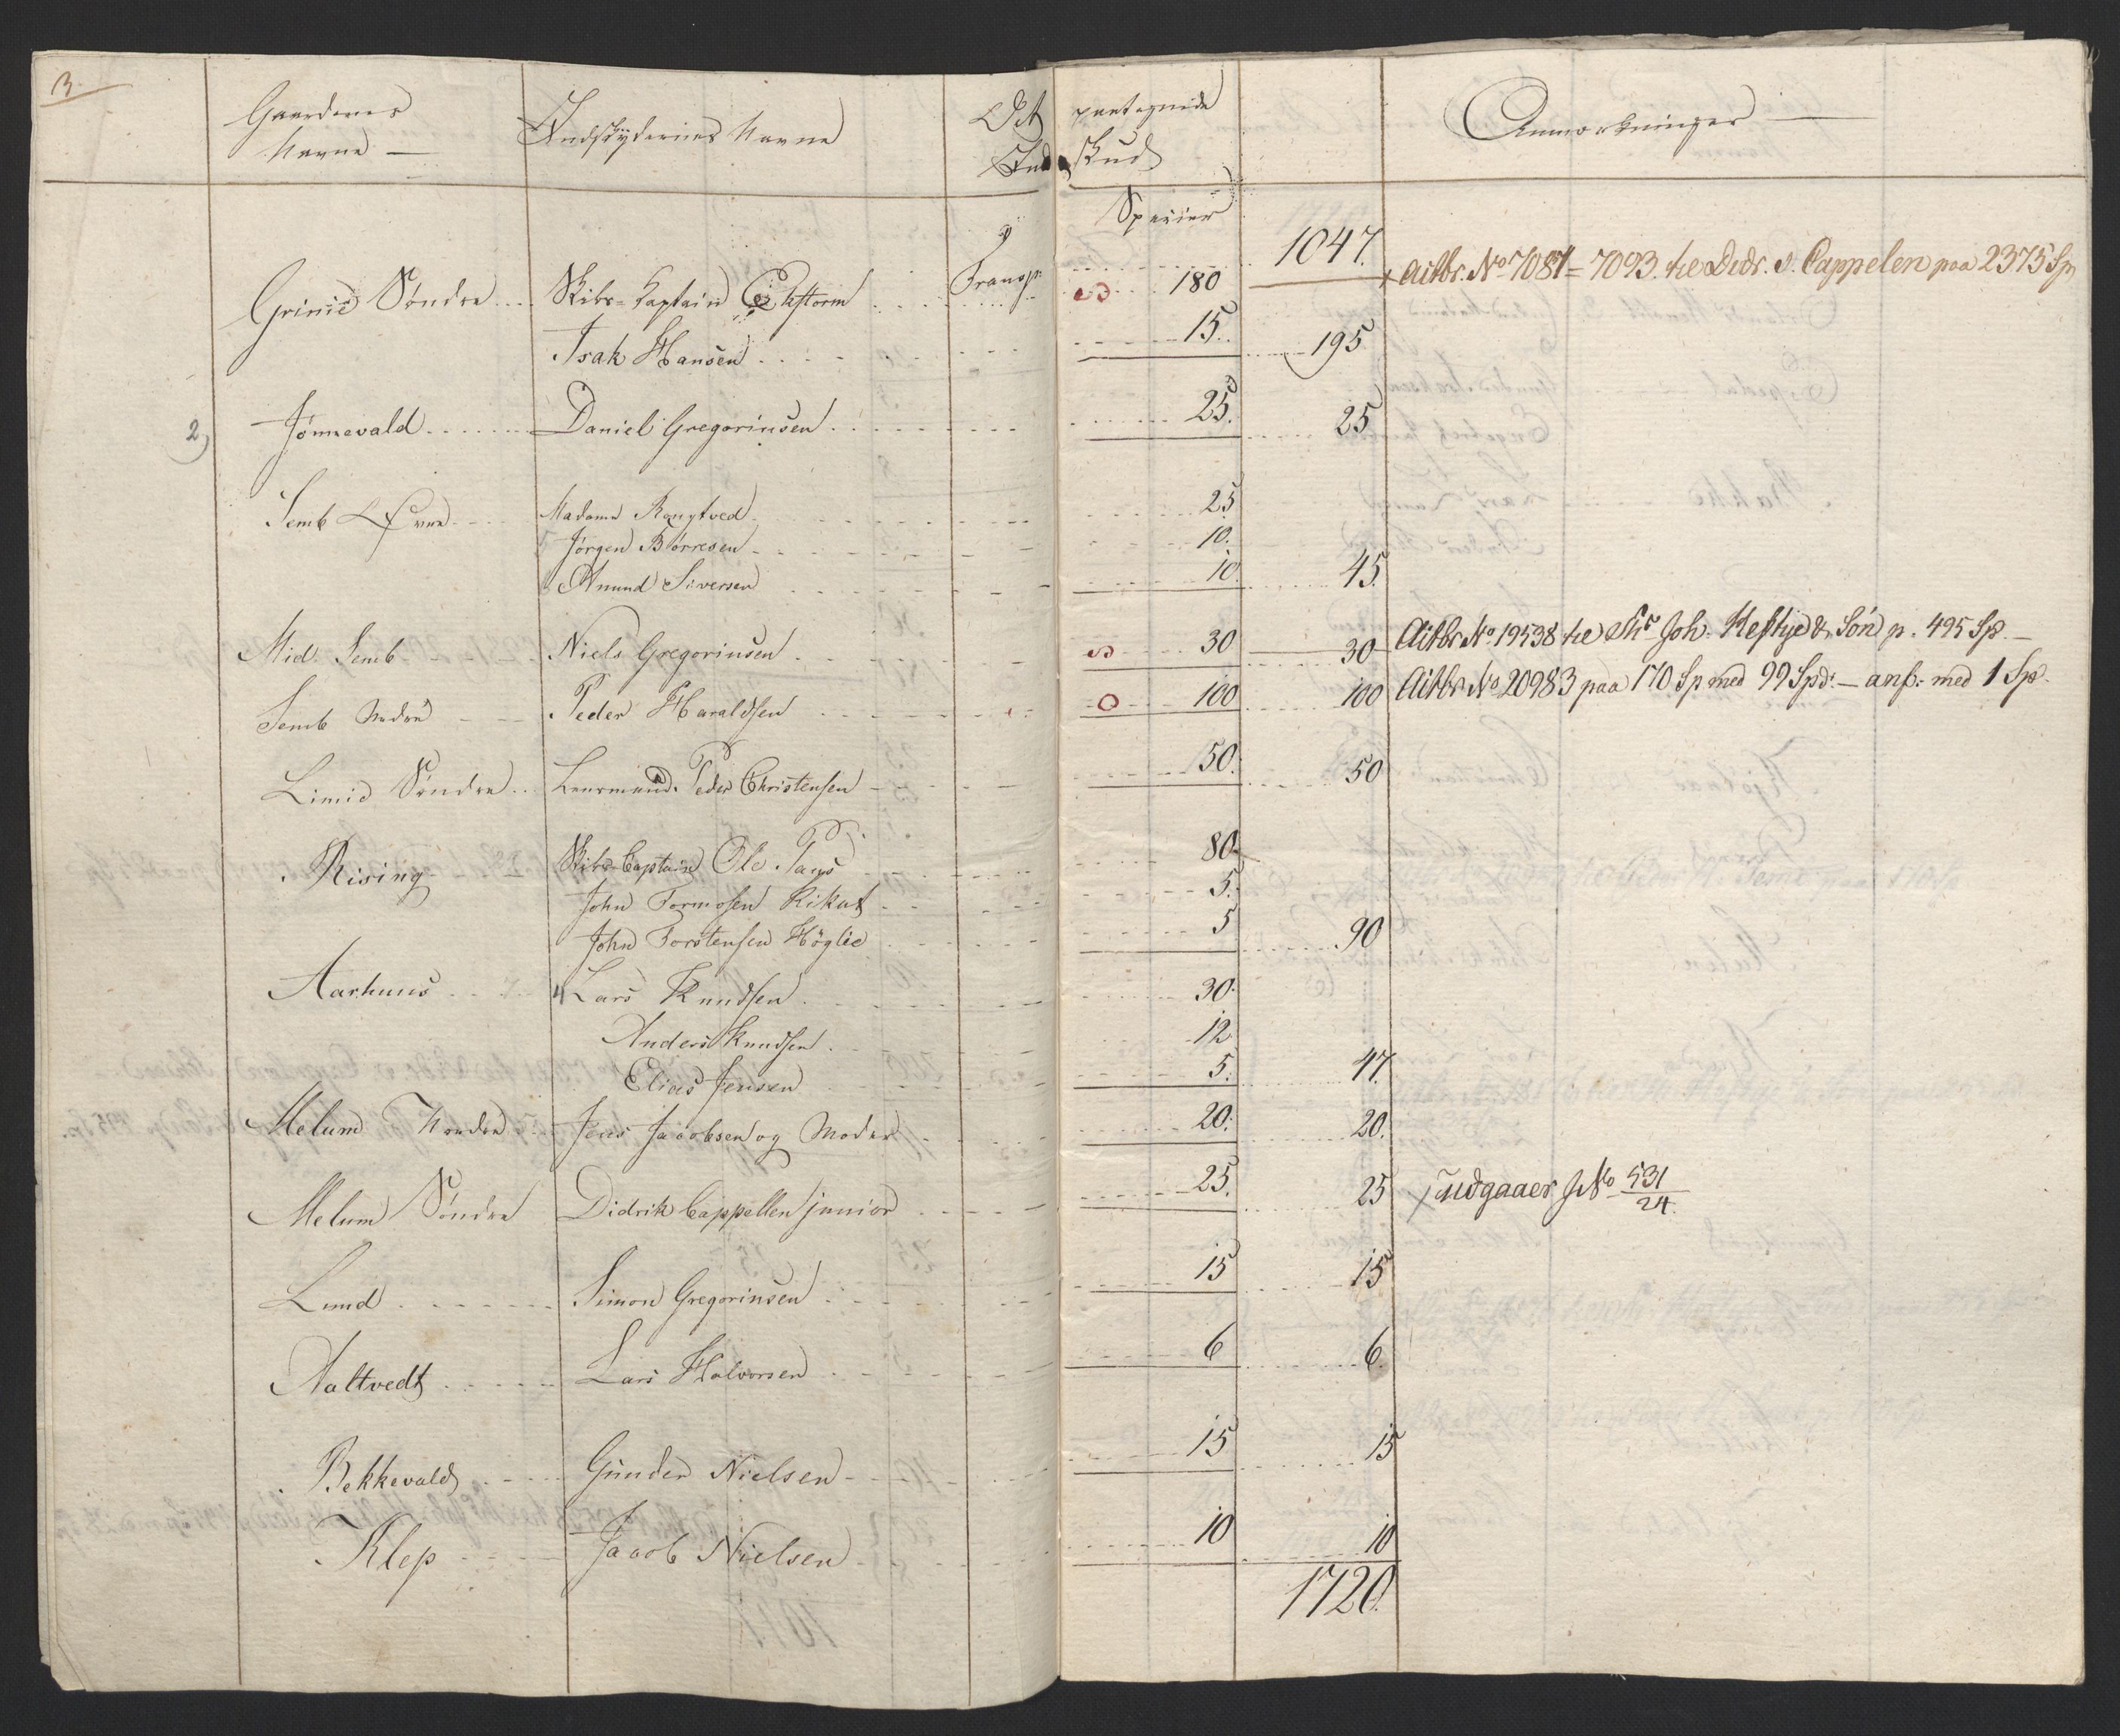 3.
Gaardenes Navne — Indskydernes Navne Det paategnede Indskud Anmærkninger —
Specier
Transp. 1047.
Grinie Søndre Skibs-Captain Ekstorm 180 Actbr. No 7081 = 7093. til Didr. v. Cappelen paa 2375 Sp
Isak Hansen 15. 195
2) Jønnevald Daniel Gregoriusen 25. 25
Semb Øvre Madame Rongtved 25
Jörgen Börresen 10.
Amund Siversen 10. 45.
Mid. Semb Niels Gregoriusen 30 30 Actbr No 19538 til Joh. Heftye & Søn p. 495 Sp. —
Semb Nedre Peder Haraldsen 100 100 Actbr No 20983 paa 170 Sp med 99 Spd: — anf: med 1 Sp.
Limie Søndre Lensmand Peder Christensen 50. 50
Rising Skibs-Captain Ole Paus 80.
John Tormosen Kikut 5.
John Torstensen Höglie 5 90
Aarhuus Lars Knudsen 30.
Anders Knudsen 12
Elias Jensen 5. 47.
Melum Nordre Jens Jacobsen og Moder 20. 20.
Melum Søndre Didrik Cappellen junior 25. 25 udgaaer J No 531/24.
Lund Simon Gregoriusen 15 15
Aaltvedt Lars Halvorsen 6 6.
Bekkevald Gunder Nielsen 15 15
Klep Jacob Nielsen 10 10
1720.